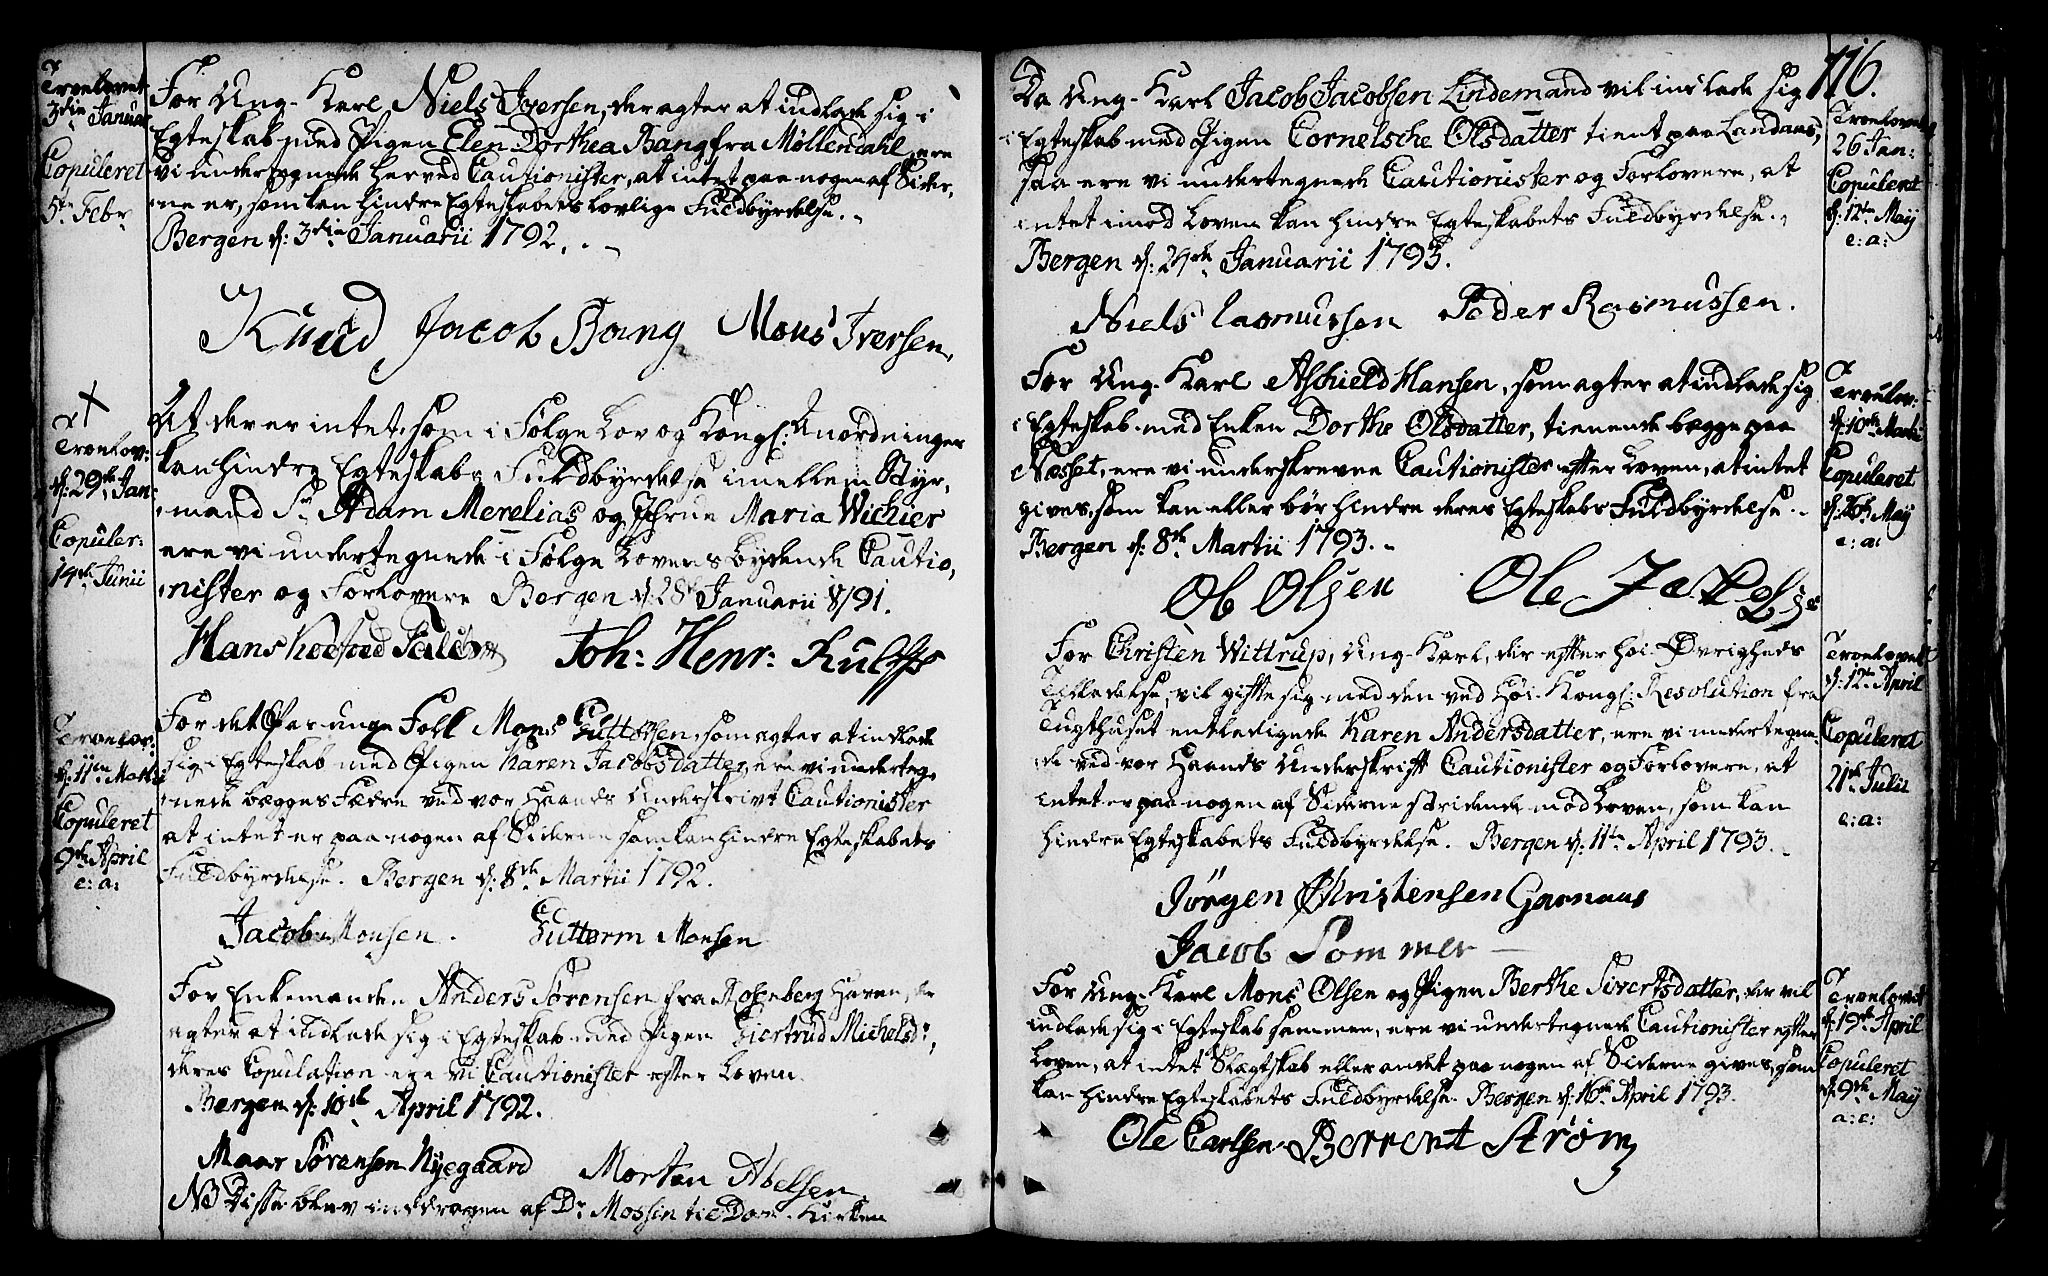 Troelovet
3die Januar
Copuleret
5te Febr
For Ung-Karl Niels Iversen, der agter at indlade sig i
Egteskab med Pigen Elen Dorthea Bang fra Møllendahl, ere
vi undertegnede herved Cautionister, at intet paa nogen af Sider,
ne er, som kan hindre Egteskabets lovlige Fuldbyrdelse.
Bergen d: 3die Januarii 1792.
Knud Jacob Bang Mons Iversen,
Troelov:
d: 29de Jan:
Copuler:
14de Junii
At der er intet, som i Følge Lov og Kongl: Anordninger
kan hindre Egteskabs Fuldbyrdelse imellem Styr,
mand Sr Adam Merelias og Jfrue Maria Wichier
ere vi undertegnede i Følge Lovens bydende Cautio,
nister og Forlovere Bergen d: 28de Januarii 1791.
Hans Joh: Henr:
Troelov:
d: 11te Martii
Copuleret
9de April
e: a:
For det Par unge Folk Mons Guttormsen, som agter at indlade
sig i Egteskab med Pigen Karen Jacobsdatter, ere vi underteg,
nede begges Fædre ved vor Haands Underskrivt Cautionister,
at intet er paa nogen af Siderne som kan hindre Egteskabets
Fuldbyrdelse. Bergen d: 8de Martii 1792.
Jacob Monsen. Guttorm Monsen
For Enkemanden Anders Sørensen fra Rosenberg Haven, der
agter at indlade sig i Egteskab med Pigen Giertrud Michelsdr,
deres Copulation ere vi Cautionister efter Loven.
Bergen d: 10de April 1792.
Sørensen Nyegaard Morten Abelsen
NB Disse blev inddragen af Dr Mossin til Dom-Kirken
116.
Da Ung-Karl Jacob Jacobsen Lindemand vil indlade sig
i Egteskab med Pigen Cornelsche Olsdatter tient paa Landaas,
saa ere vi undertegnede Cautionister og Forlovere, at
intet imod Loven kan hindre Egteskabets Fuldbyrdelse.
Bergen d: 24de Januarii 1793.
Troelovet
26 Jan:
Copuleret
d: 12te Maij
e: a:
Niels Rasmussen Peder Rasmussen.
For Ung-Karl Aschield Hansen, som agter at indlade sig
i Egteskab med Enken Dorthe Olsdatter, tienende begge paa
Næsset, ere vi underskrevne Cautionister efter Loven, at intet
gives, som kan eller bør hindre deres Egteskabs Fuldbyrdelse.
Bergen d: 8de Martii 1793.
Troelov:
d: 10de Martii
Copuleret
d: Maij
e: a:
Ole Olsen Ole
For Christen Wittrup, Ung-Karl, der efter høi-Øvrigheds
Tilladelse, vil gifte sig med den ved Høi-Kongl: Resolution fra
Tugthuset entledigede Karen Andersdatter, ere vi undertegne,
de ved vor Haands Underskrift Cautionister og Forlovere, at
intet er paa nogen af Siderne stridende mod Loven, som kan
hindre Egteskabets Fuldbyrdelse. Bergen d: 11te April 1793.
Troelovet
d: 12te April
Copuleret
21de Julii
e: a:
Jørgen Christensen
Jacob Sommer
For Ung-Karl Mons Olsen og Pigen Berthe Sivertsdatter, der vil
indlade sig i Egteskab sammen, ere vi undertegnede Cautionister efter
Loven, at intet Slægtskab eller andet paa nogen af Siderne gives, som
kan hindre Egteskabets Fuldbyrdelse. Bergen d: 16de April 1793.
Troelovet
d: 19de April
Copuleret
d: 9de Maij
a: e:
Ole Carlsen Berrent Strøm